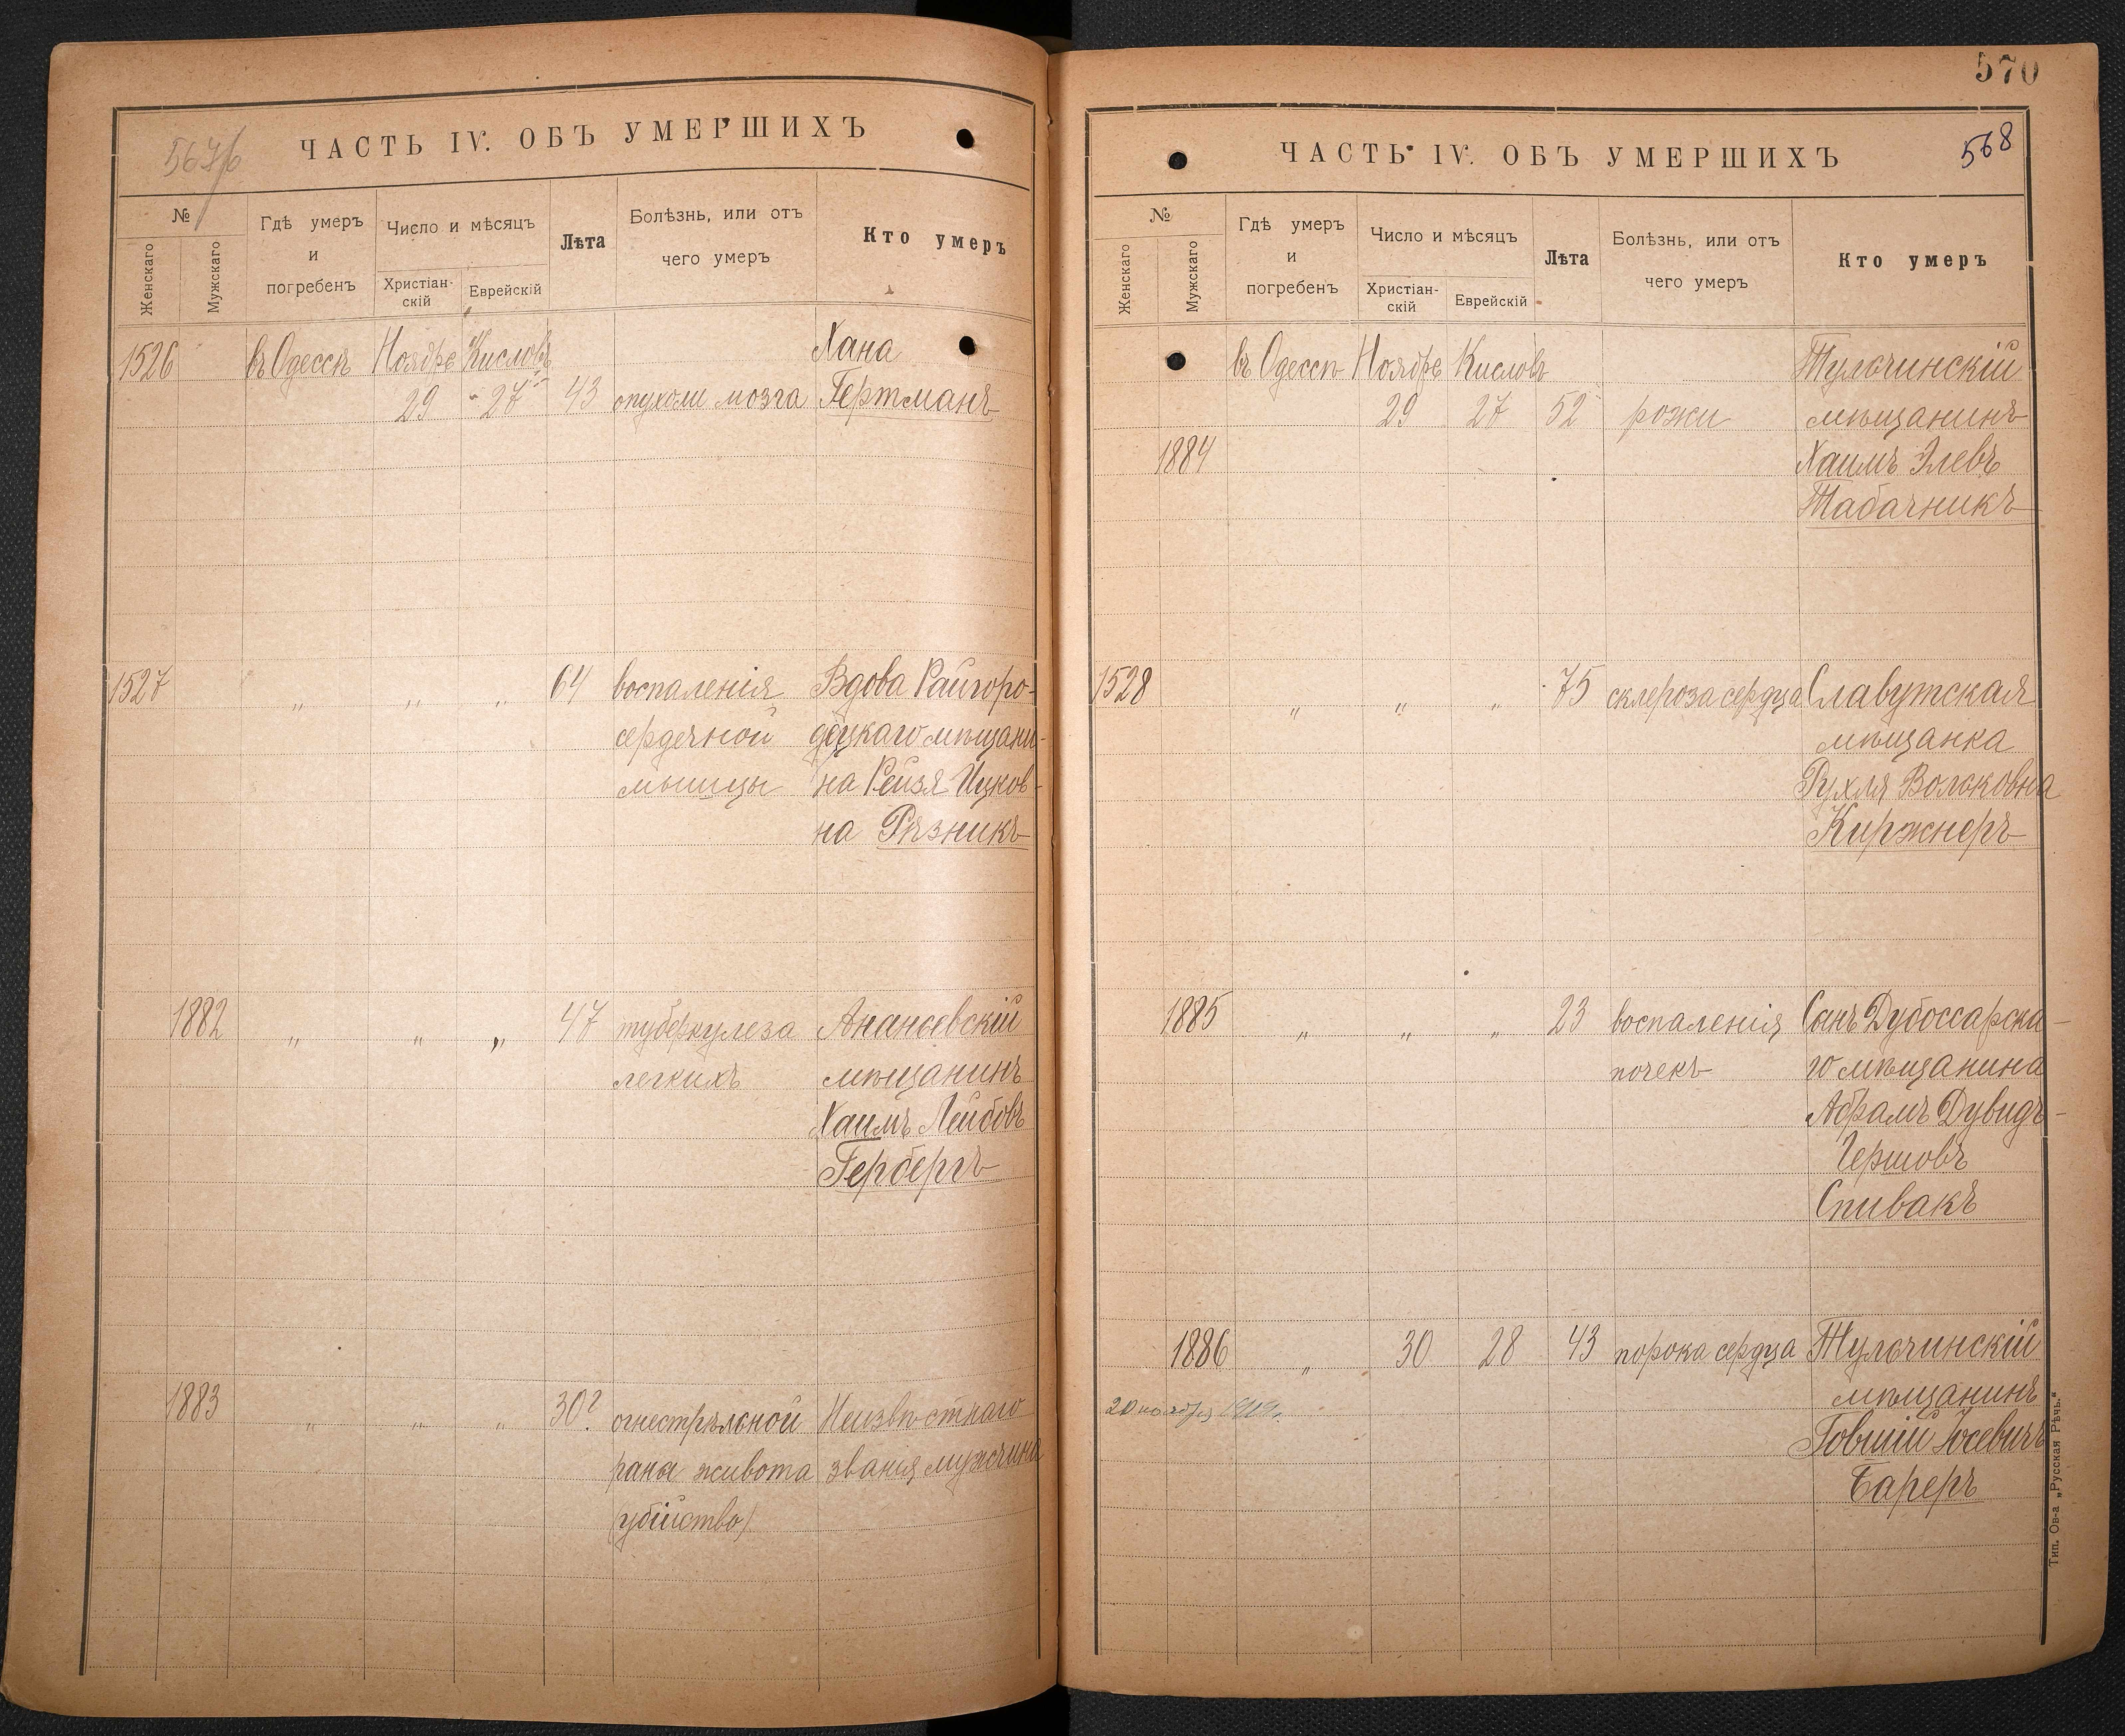 567/б
ЧАСТЬ IV. ОБЪ УМЕРШИХЪ
№
Женскаго
Мужскаго
Гдѣ умеръ
и
погребенъ
Число и мѣсяцъ
Христіан-
скій
Еврейскій
Лѣта
Болѣзнь, или отъ
чего умеръ
Кто умеръ
1526 въ Одессѣ Ноябрь Кисловъ Хана
29 27 43 опухоли мозга Гертманъ
1527 „ „ „ 64 воспаленія Вдова Райгоро-
сердечной децкаго мѣщани-
мышцы на Рейзя Ицков-
на Рѣзникъ
1882 „ „ „ 47 туберкулеза Ананьевскій
легкихъ мѣщанинъ
Хаимъ Лейбовъ
Герберъ
1883 „ „ „ 30? огнестрѣльной Неизвѣстнаго
раны живота званія мужчина
(убійство)
570
568
ЧАСТЬ IV. ОБЪ УМЕРШИХЪ
№
Женскаго
Мужскаго
Гдѣ умеръ
и
погребенъ
Число и мѣсяцъ
Христіан-
скій
Еврейскій
Лѣта
Болѣзнь, или отъ
чего умеръ
Кто умеръ
въ Одессѣ Ноябрь Кисловъ Тульчинскій
29 27 52 рожи мѣщанинъ
1884 Хаимъ Элевъ
Табачникъ
1528 „ „ „ 75 склероза сердца Славутская
мѣщанка
Рухля Вольковна
Киржнеръ
1885 „ „ „ 23 воспаленія Сынъ Дубоссарска-
почекъ го мѣщанина
Абрамъ Дувидъ-
Гершовъ
Спивакъ
1886 „ 30 28 43 порока сердца Тульчинскій
мѣщанинъ
20 ноября 1919г.
Говшій Іосевичъ
Бареръ
Тип. Ов-а „Русская Рѣчь."